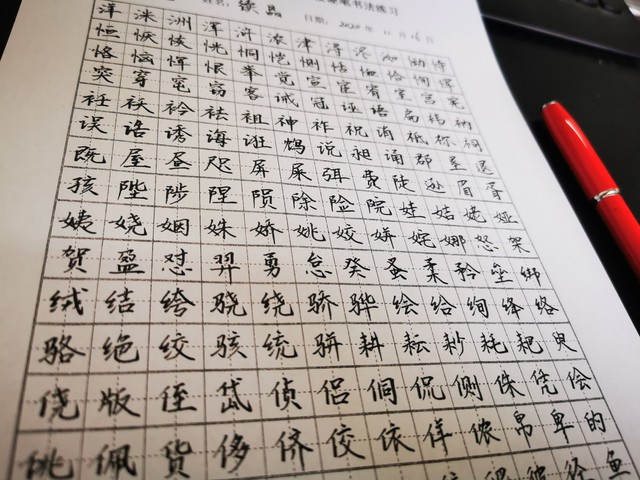 硬笔书法练习
日期: 2020 11 16日
洋 洙 洲 浑 浒 浓 津 浔 浕 恸 恃
恒 恢 恍 恫 恺 恻 恬 恤 恰 恂
恪 恼 恽 恨 举 觉 宣 宦 宥 室 宫 宪
突 穿 窀 窃 客 诫 冠 诬 语 扁 袂 衲
衽 袄 衿 袪 祖 神 祚 祝 诮 祗 祢 祠
误 诰 诱 诲 诳 鸩 说 昶 诵 郡 垦 退
既 屋 昼 咫 屏 屎 弭 费 陡 逊 眉 胥
孩 陛 陟 陧 陨 除 险 院 娃 姞 姥 娅
姨 娆 姻 姝 娇 姚 姣 姘 姹 娜 怒 架
贺 盈 怼 羿 勇 怠 癸 蚤 柔 矜 垒 绑
绒 结 绔 骁 绕 骄 骅 绘 给 绚 绛 络
骆 绝 绞 骇 统 骈 耕 耘 耖 耗 耙 臾
侥 版 侄 岱 侦 侣 侗 侃 侧 侏 凭 侩
佻 佩 货 侈 侪 佼 依 佯 侬 帛 卑 的
径 鱼